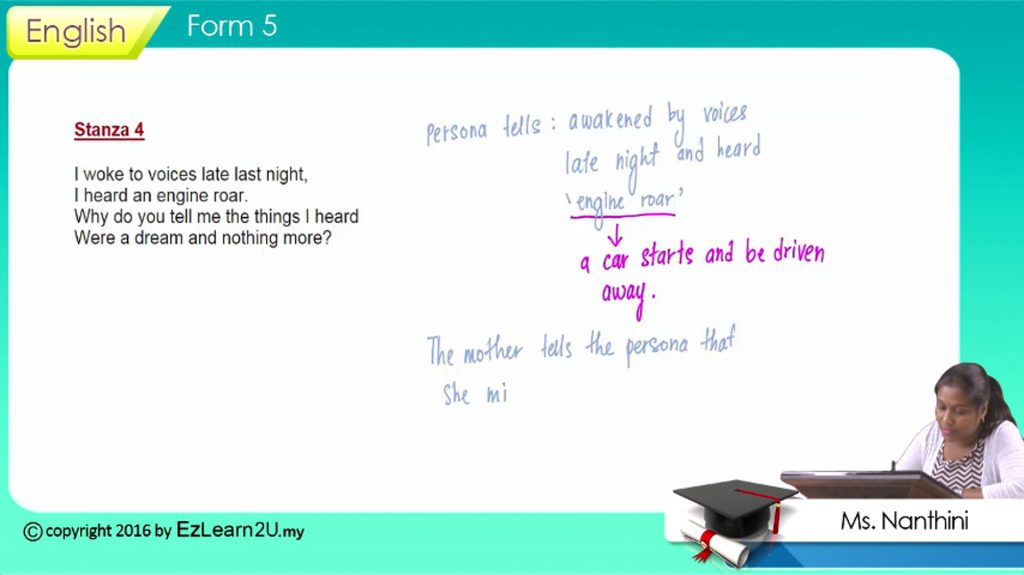 English
Form 5
Stanza 4
I woke to voices late last night,
I heard an engine roar.
Why do you tell me the things I heard
Were a dream and nothing more?
persona tells : awakened by voices
late night and heard
'engine roar'
a car starts and be driven
away.
The mother tells the persona that
She mi
© copyright 2016 by EzLearn2U.my
Ms. Nanthini